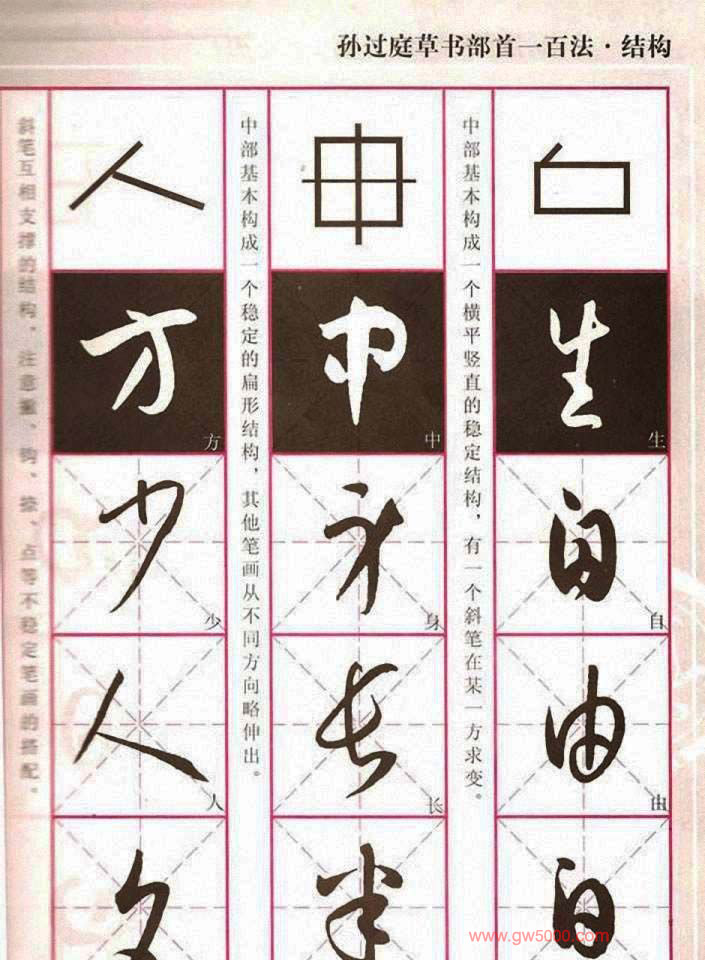 孙过庭草书部首一百法·结构
生
生
自
自
由
由
中部基本构成一个横平竖直的稳定结构，有一个斜笔在某一方求变。
中
中
身
身
长
长
半
中部基本构成一个稳定的扁形结构，其他笔画从不同方向略伸出。
方
方
少
少
人
人
斜笔互相支撑的结构。注意撇、钩、捺、点等不稳定笔画的搭配。
www.gw5000.com